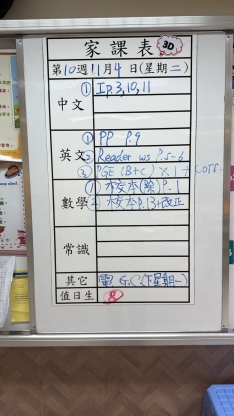 家課表 3D
第10週11月4日(星期二)
中文 ① Ip3,10,11
英文 ① PP P.9
② Reader ws P.5-6
③ PGE (B+C) X1 + corr.
數學 ① 校本(綠) P.1
② 校本P.13+改正
常識
其它
值日生 8